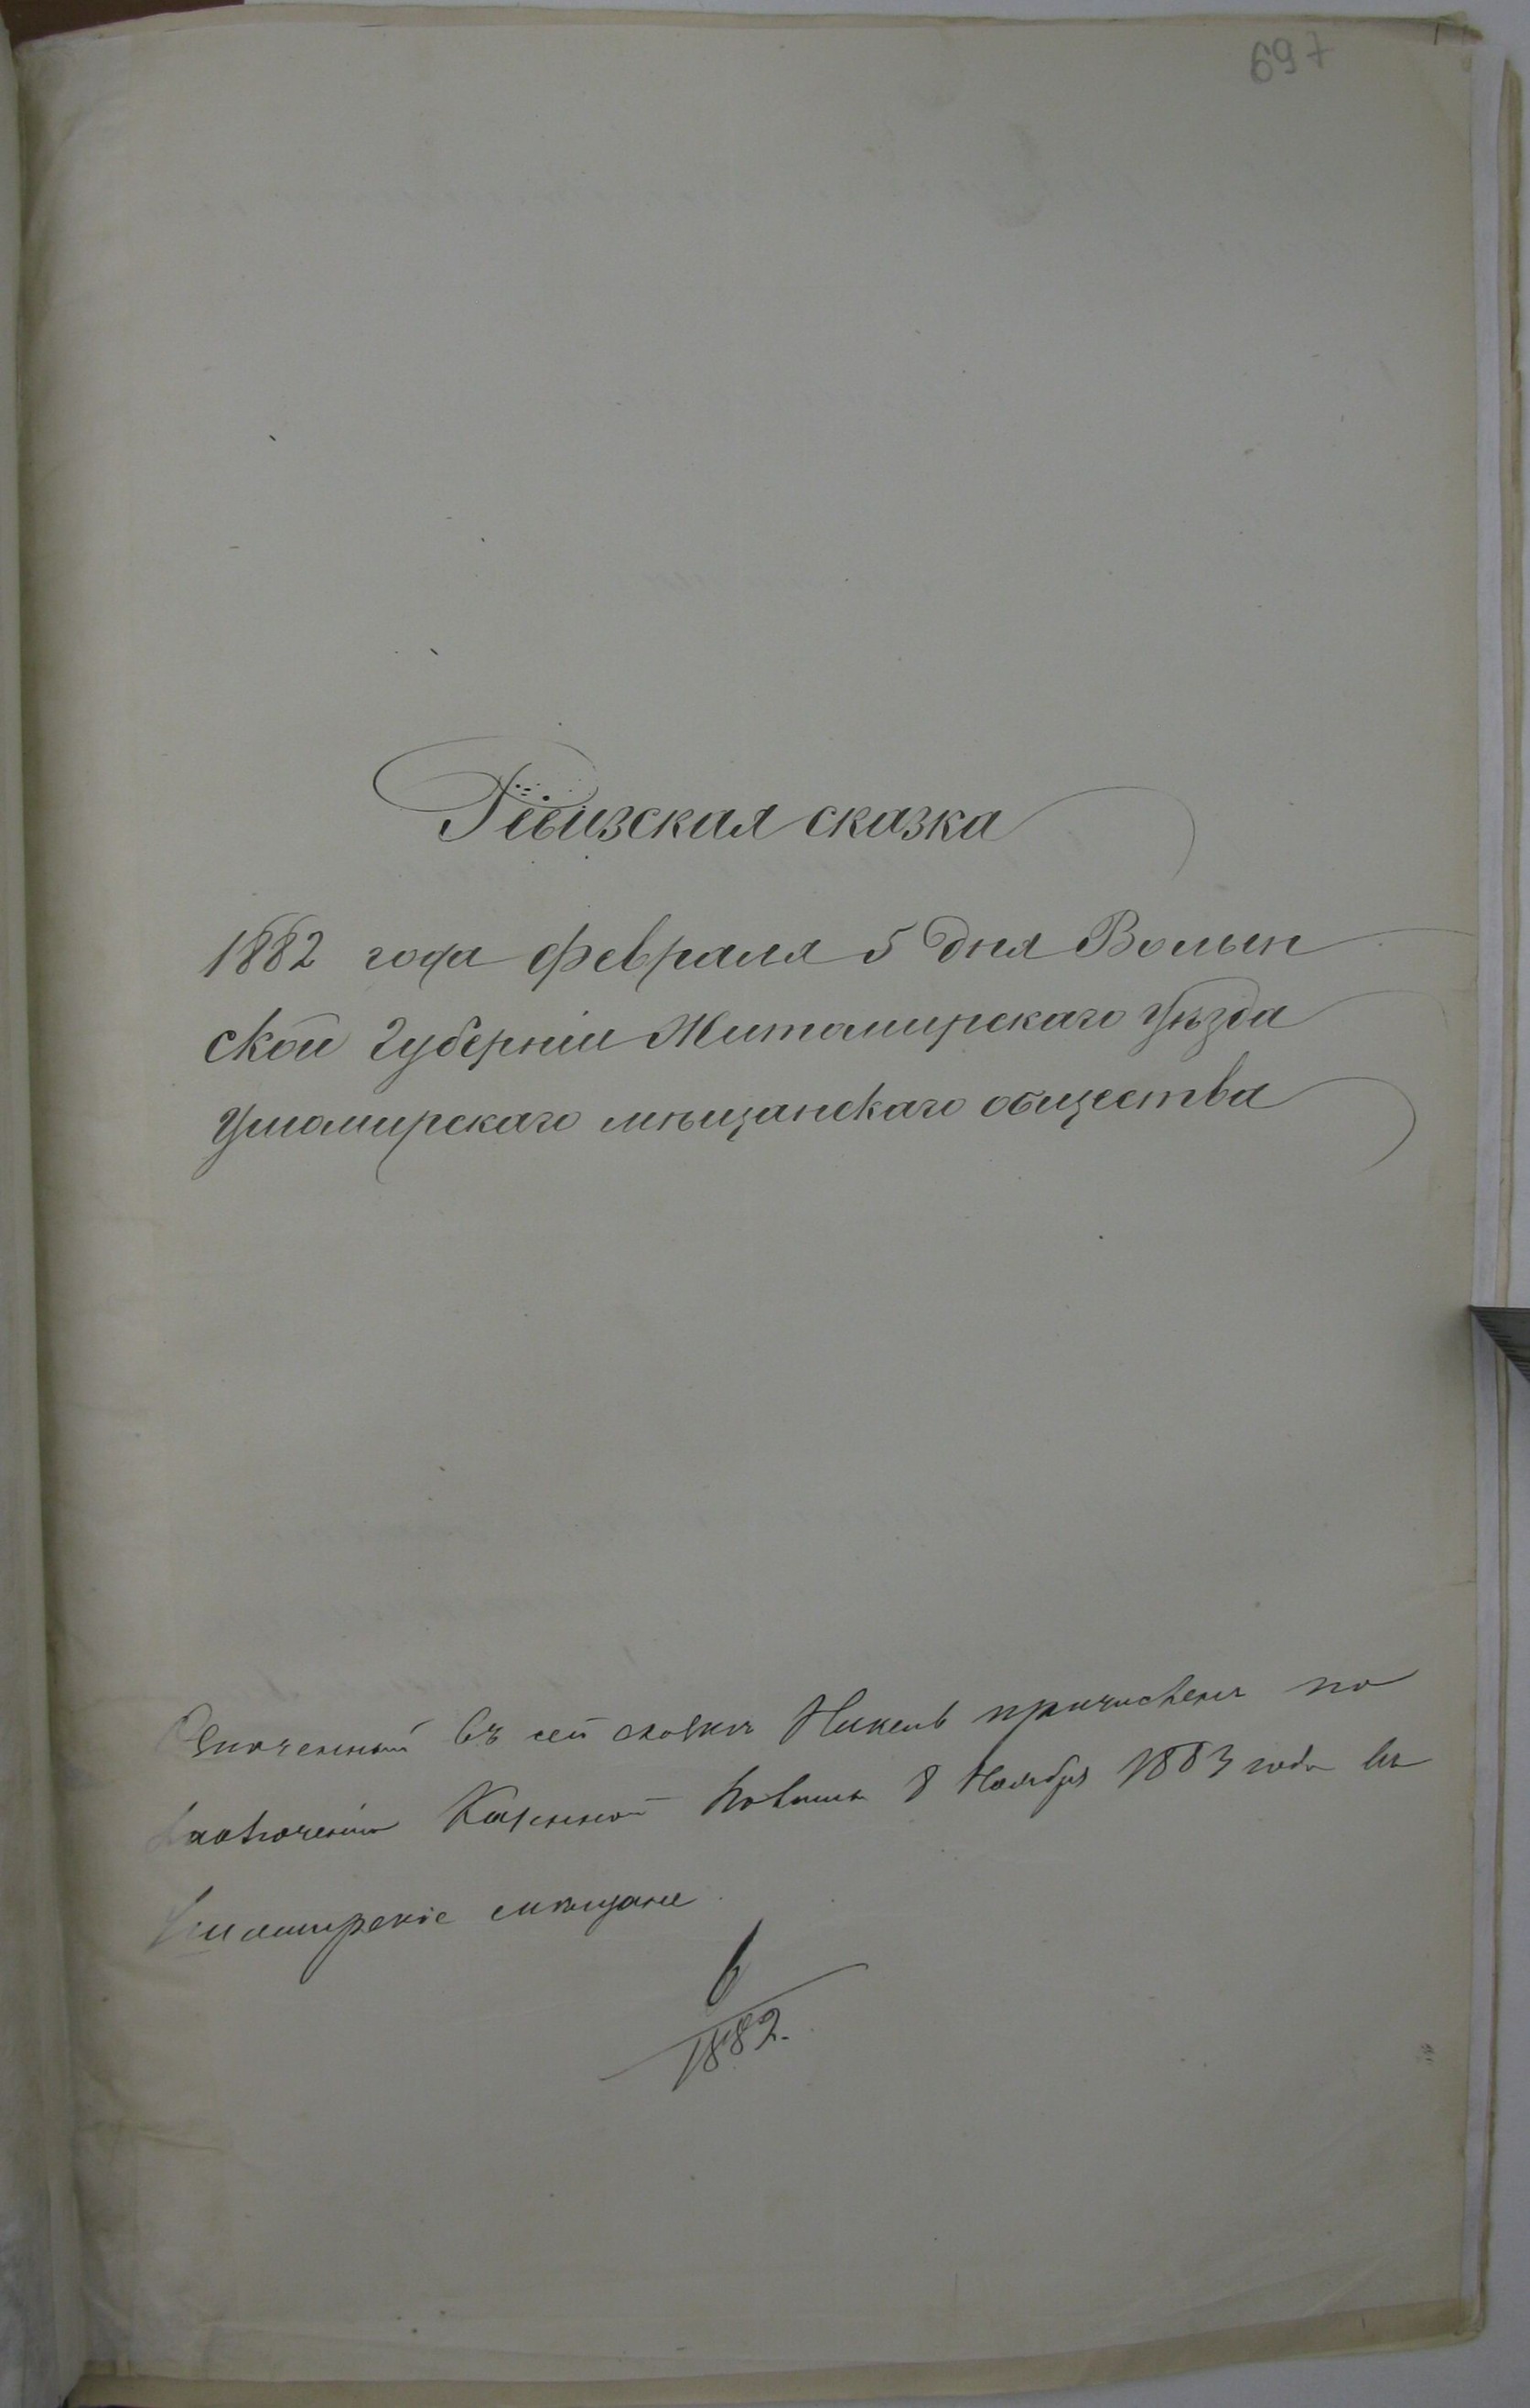 697
Ревизская сказка
1882 года февраля 5 дня Волын
ской Губерніи Житомирскаго Уѣзда
Ушомирскаго мѣщанскаго общества
въ сей сказкѣ причисленъ по
заключенію Казенной Палаты 8 Ноября 1883 года въ
Ушомирскіе мѣщане
6
1882.